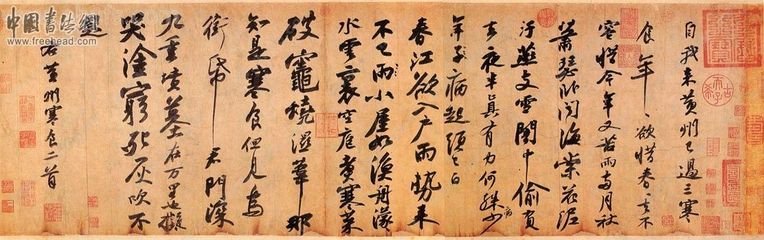 中国书法网
www.freehead.com
自我来黄州已過三寒
食年〻欲惜春〻去不
容惜今年又苦雨兩月秋
蕭瑟卧聞海棠花泥
汙燕支雪闇中偷負
去夜半真有力何殊病少
年子病起頭已白
春江欲入户雨勢来
不已雨小屋如漁舟濛〻
水雲裏空庖煮寒菜
破竈燒溼葦那
知是寒食但見烏
銜帋君門深
九重墳墓在万里也擬
哭塗窮死灰吹不
起
右黄州寒食二首